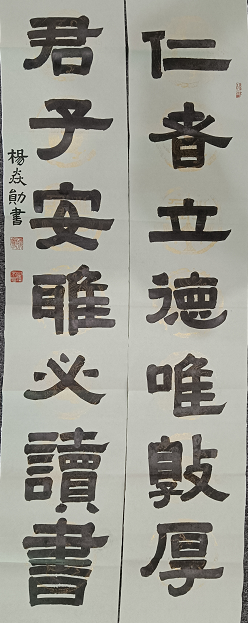 仁者立德唯敦厚
君子安雅必讀書
楊焱勛書